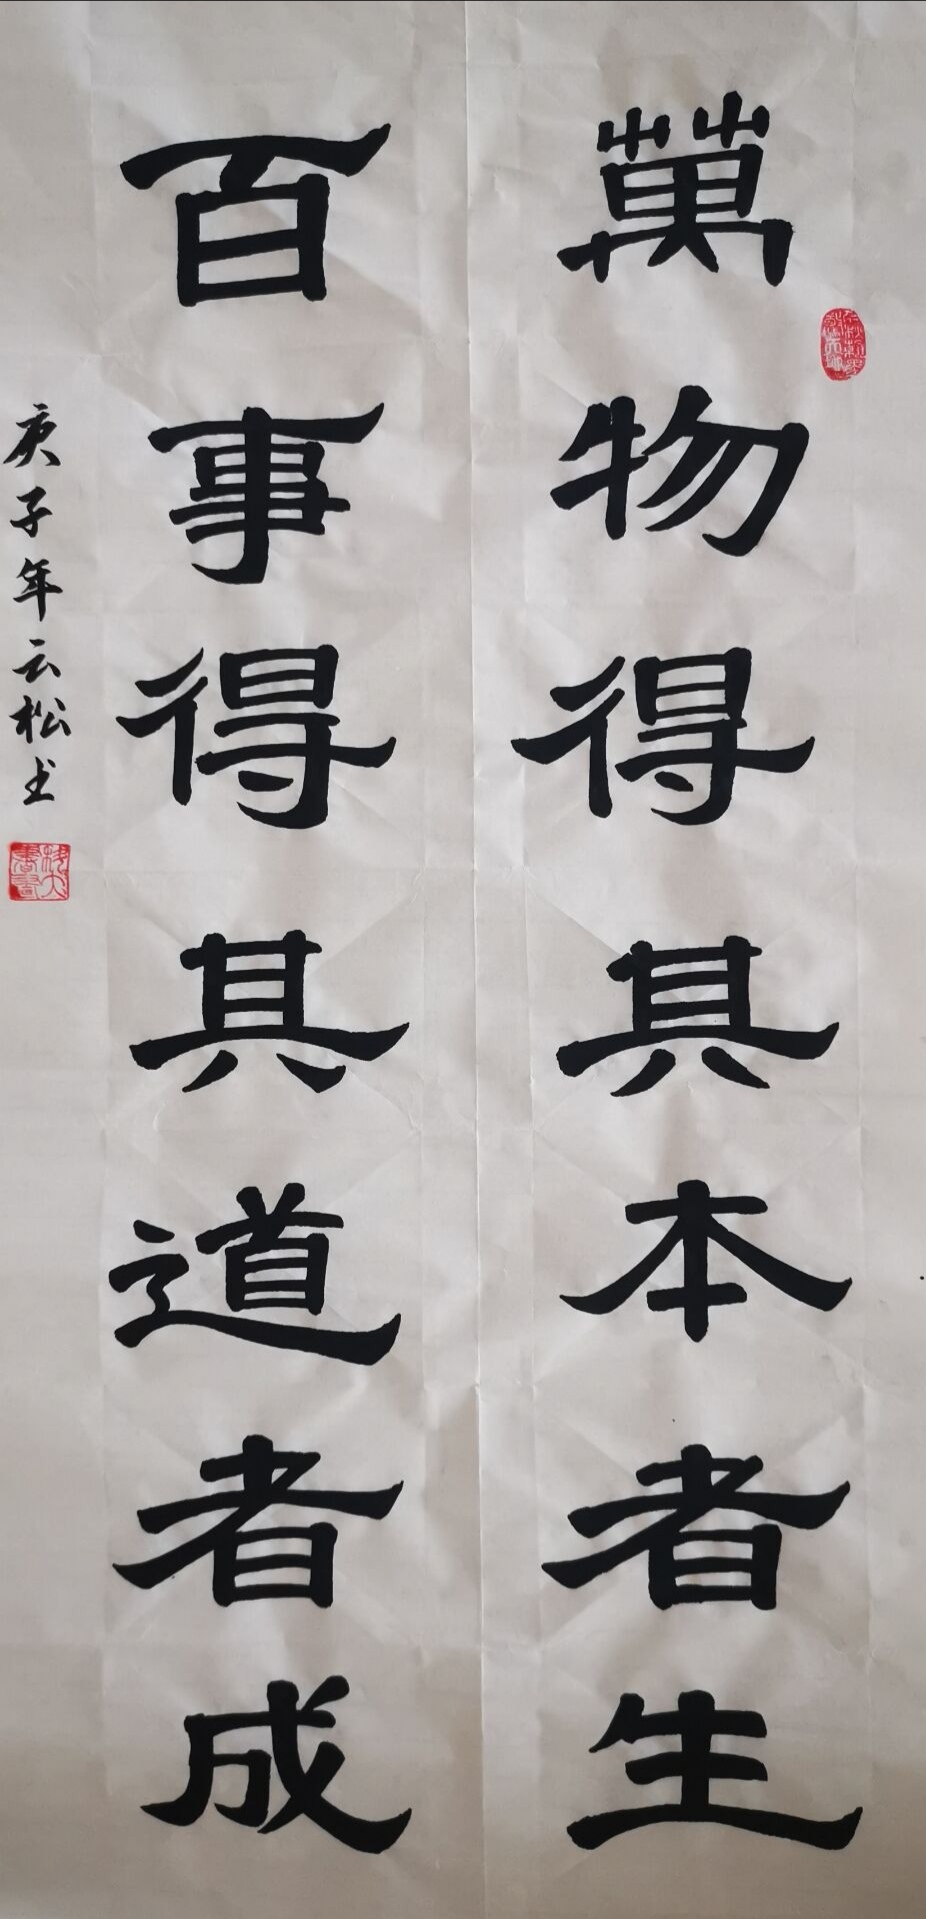 萬物得其本者生
百事得其道者成
庚子年云松书